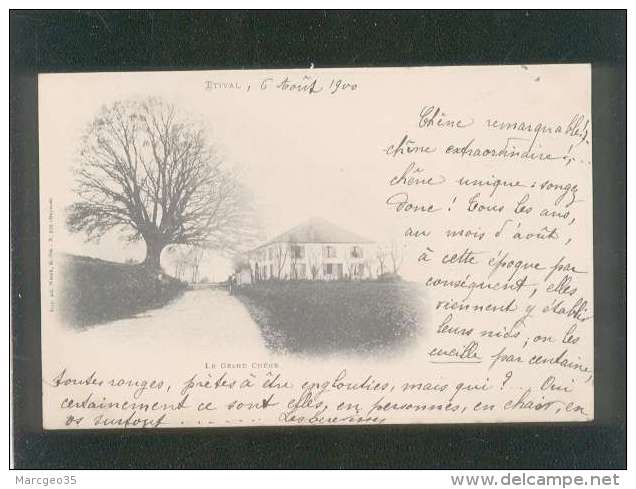 ETIVAL, 6 Août 1900
Chêne remarquable!,
chêne extraordinaire!,...
chêne unique : songez
donc! Tous les ans,
au mois d'août,
à cette époque par
conséquent, elles
viennent y établir
leurs nids; on les
cueille par centaine,
LE GRAND CHÊNE
toutes rouges, prêtes à être englouties, mais qui?... Oui
certainement ce sont elles, en personnes, en chair, en
os surtout
Marcgeo35
www.delcampe.net